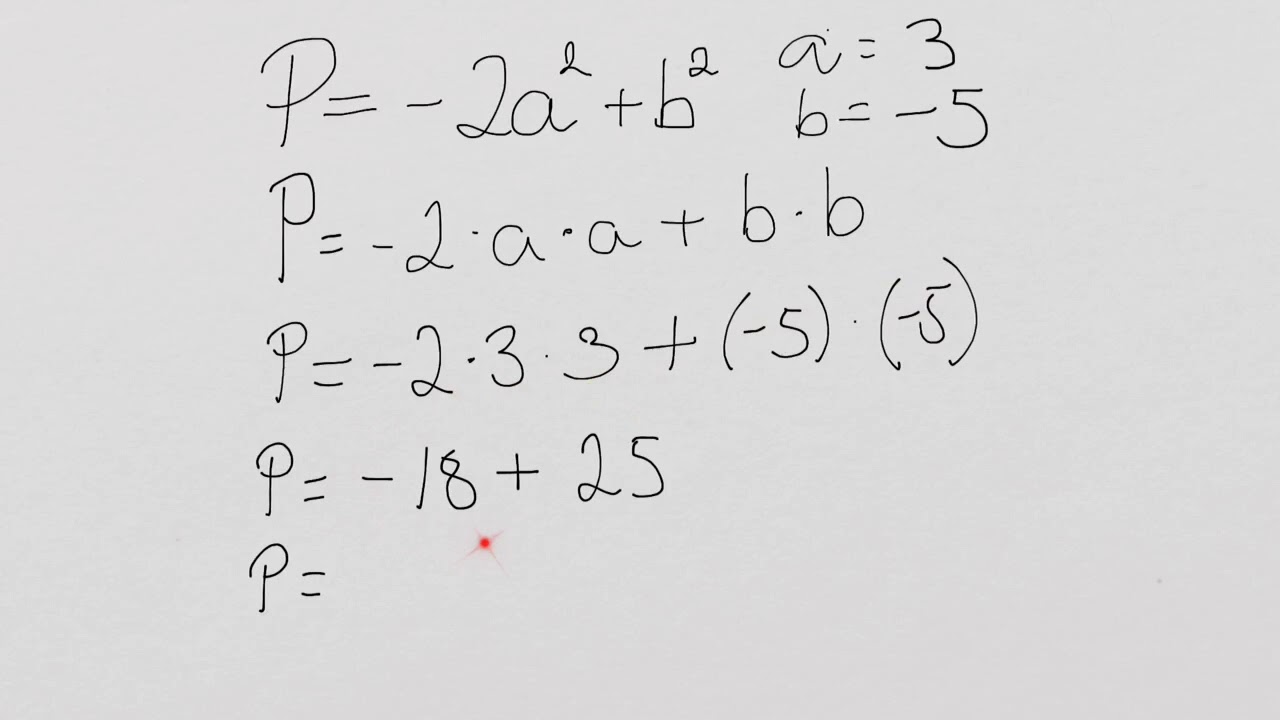 P = -2a² + b² a = 3
b = -5
P = -2 · a · a + b · b
P = -2 · 3 · 3 + (-5) · (-5)
P = -18 + 25
P =